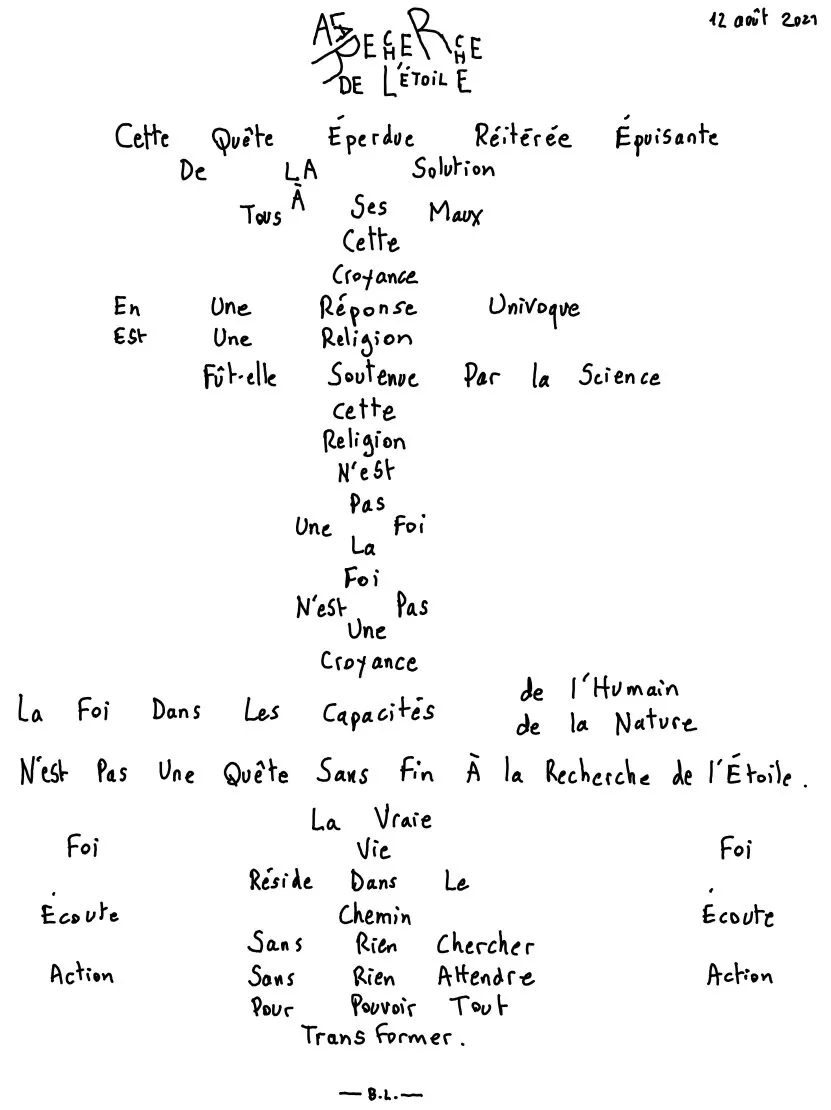 12 août 2021
RECHERCHE
DE L'ÉTOILE
Cette Quête Éperdue Réitérée Épuisante
De LA Solution
À
Tous Ses Maux
Cette
Croyance
En Une Réponse Univoque
Est Une Religion
Fût-elle Soutenue Par la Science
Cette
Religion
N'est
Pas
Une Foi
La
Foi
N'est Pas
Une
Croyance
de l'Humain
La Foi Dans Les Capacités
de la Nature
N'est Pas Une Quête Sans Fin À la Recherche de l'Étoile.
La Vraie
Foi Vie Foi
Réside Dans Le
Écoute Chemin Écoute
Sans Rien Chercher
Action Sans Rien Attendre Action
Pour Pouvoir Tout
Transformer.
— B.L. —